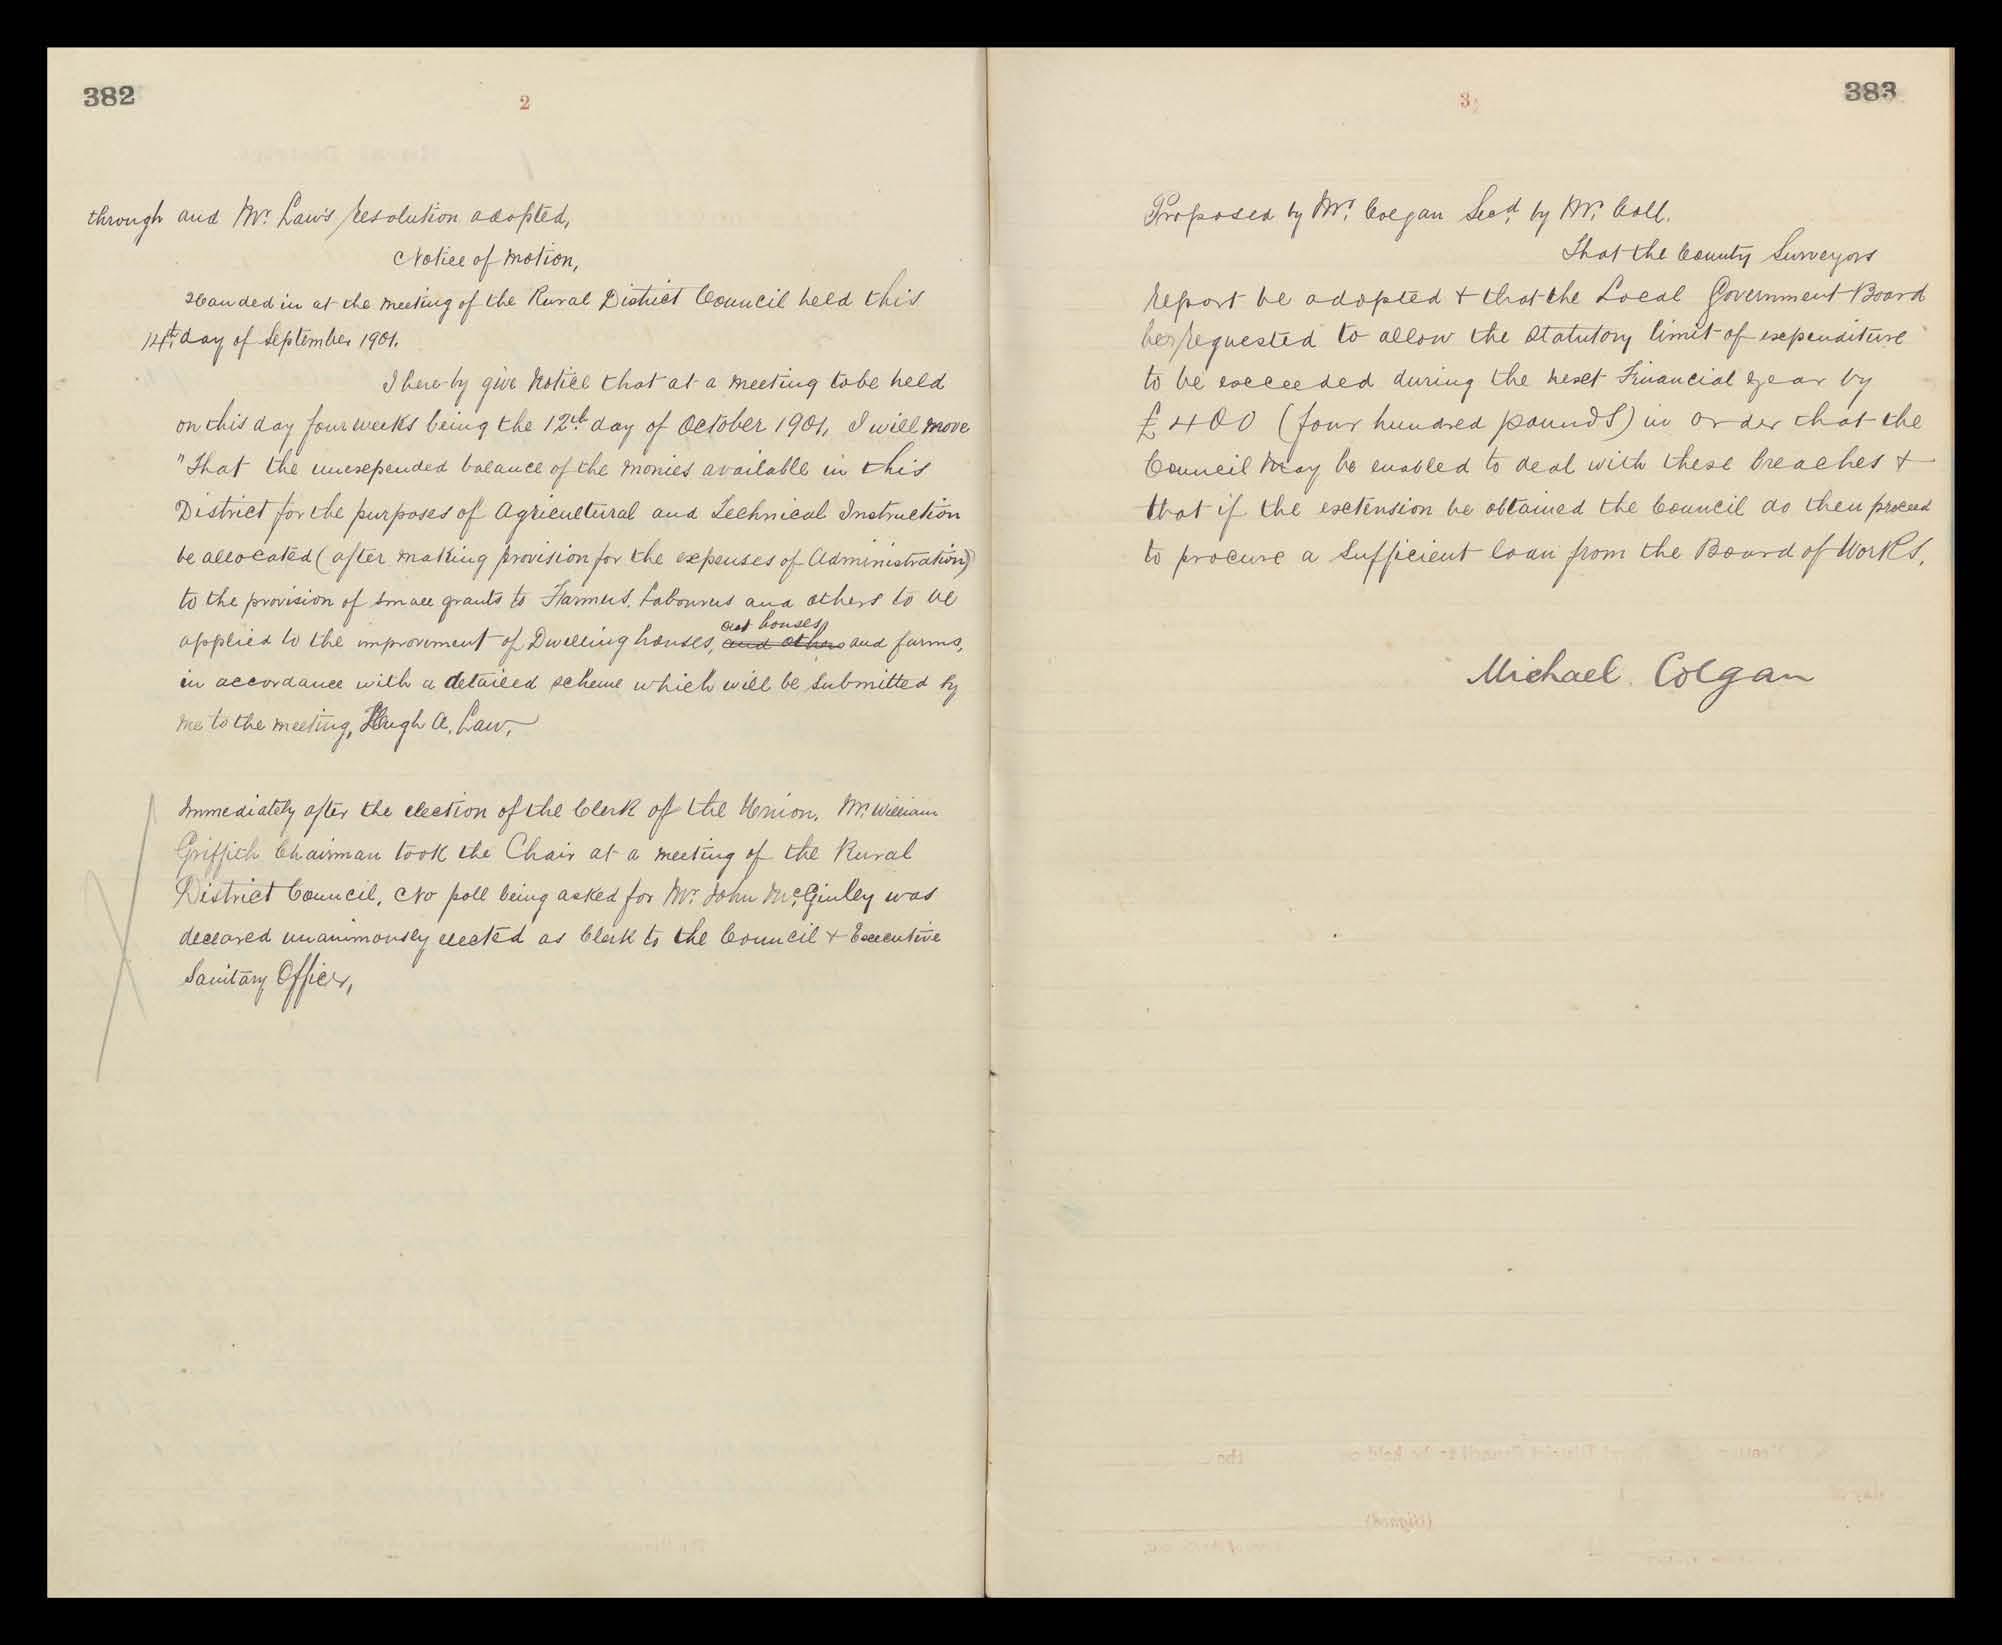 382
2
through and Mr. Law's resolution adopted,
Notice of Motion,
Handed in at the meeting of the Rural District Council held this
14th. day of September 1901.
I here-by give Notice that at a meeting to be held
on this day four weeks being the 12th. day of October 1901, I will move
"That the unexpended balance of the monies available in this
District for the purposes of Agricultural and Technical Instruction
be allocated (after making provision for the expenses of Administration)
to the provision of small grants to Farmers, Labourers and others to be
out houses,
applied to the improvement of Dwelling houses, and others and farms,
in accordance with a detailed scheme which will be submitted by
me to the meeting, Hugh A. Law,
Immediately after the election of the Clerk of the Union, Mr. William
Griffith Chairman took the Chair at a meeting of the Rural
District Council, No poll being asked for Mr. John McGinley was
declared unanimously elected as Clerk to the Council & Executive
Sanitary Officer,
383
3
Proposed by Mr. Colgan Secd. by Mr. Coll.
That the County Surveyors
report be adopted & that the Local Government Board
be requested to allow the statutory limit of expenditure
to be exceeded during the next Financial year by
£400 (four hundred pounds) in order that the
Council may be enabled to deal with these breaches &
that if the extension be obtained the Council do then proceed
to procure a sufficient loan from the Board of Works.
Michael Colgan